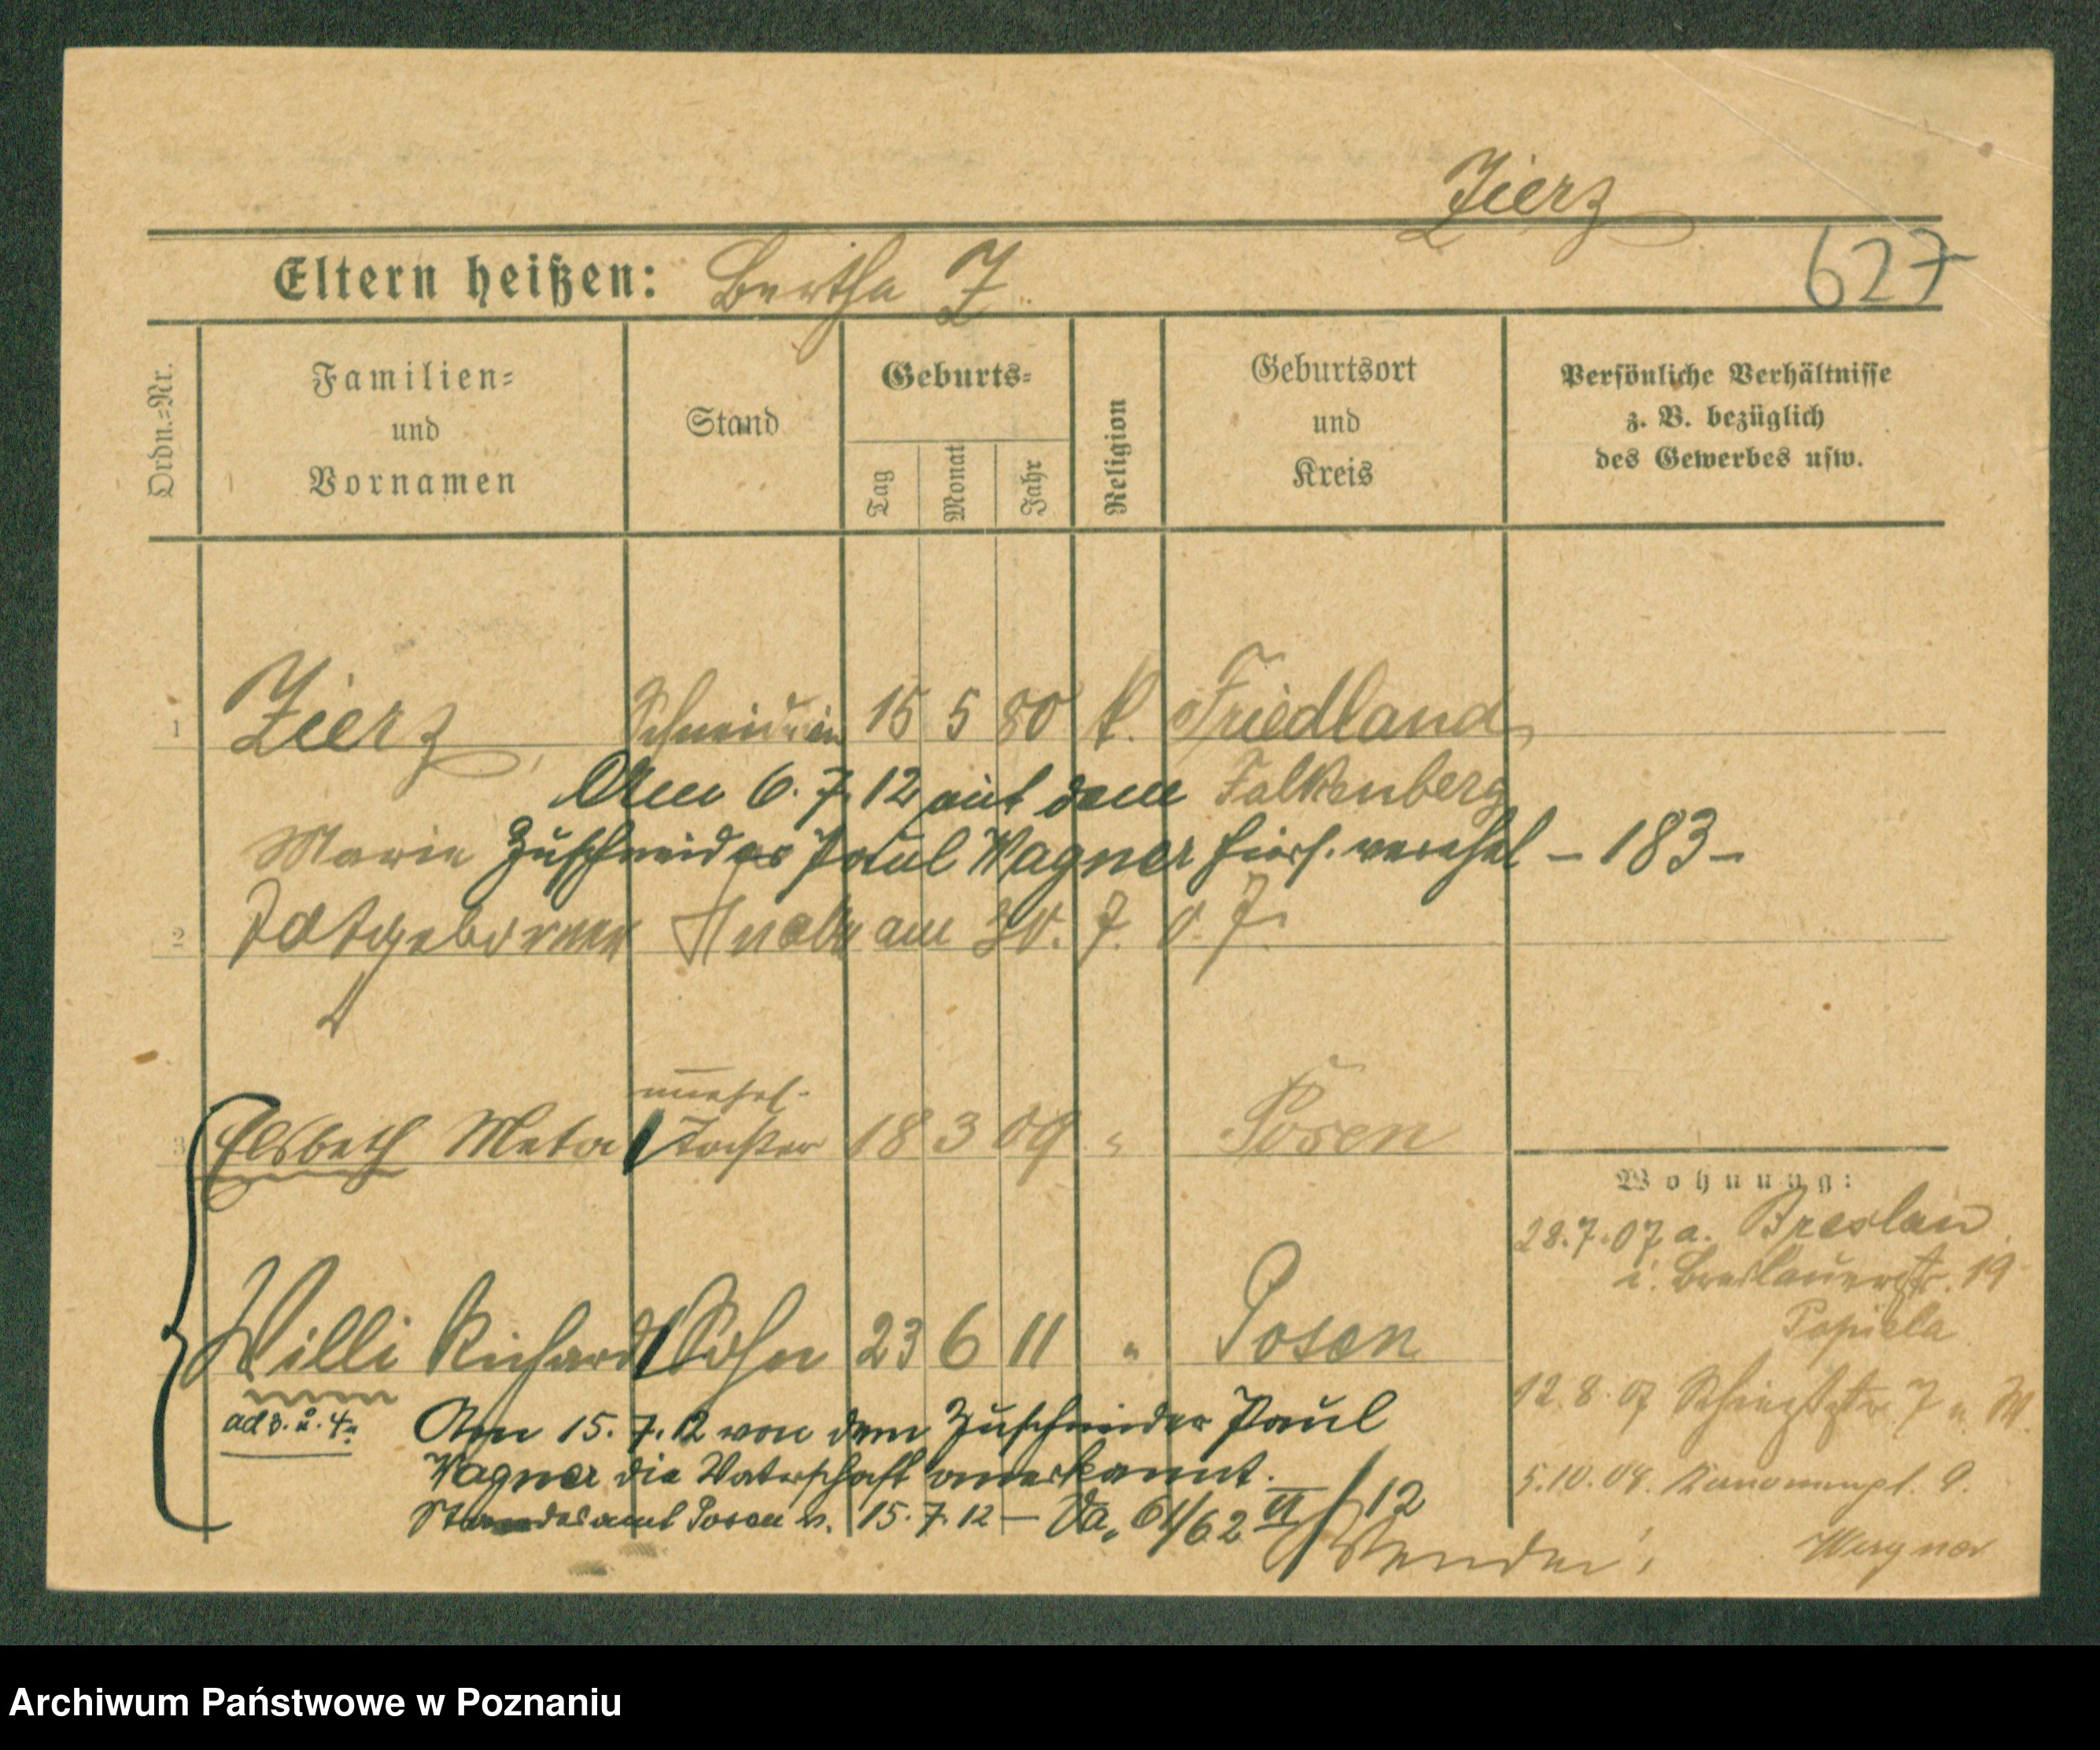 Zierz
Eltern heißen: Bertha Z.
627
Ordn.-Nr.
Familien-
und
Vornamen
Stand
Geburts-
Tag
Monat
Jahr
Religion
Geburtsort
und
Kreis
Persönliche Verhältnisse
z. B. bezüglich
des Gewerbes usw.
1 Zierz, Schneiderin 15 5 80 k. Friedland,
Am 6. 7. 12 mit dem Falkenberg
Marie Zuschneider Paul Wagner hiers. verehel – 183 –
2 Totgeborener Knabe am 30. 7. 07.
unehel.
3 Elsbeth Meta Tochter 18 3 09 " Posen
Wohnung:
28.7.07 a. Breslau
i. Breslauerstr. 19
Popiela
Willi Richard Sohn 23 6 11 " Posen
12.8.07 7
ad 3. u. 4.
Am 15. 7. 12 von dem Zuschneider Paul
Wagner die Vaterschaft anerkannt.
Standesamt Posen v. 15. 7. 12 – 61/62 II/12
5.10.09. 9.
Wenden!
Wagner
Archiwum Państwowe w Poznaniu